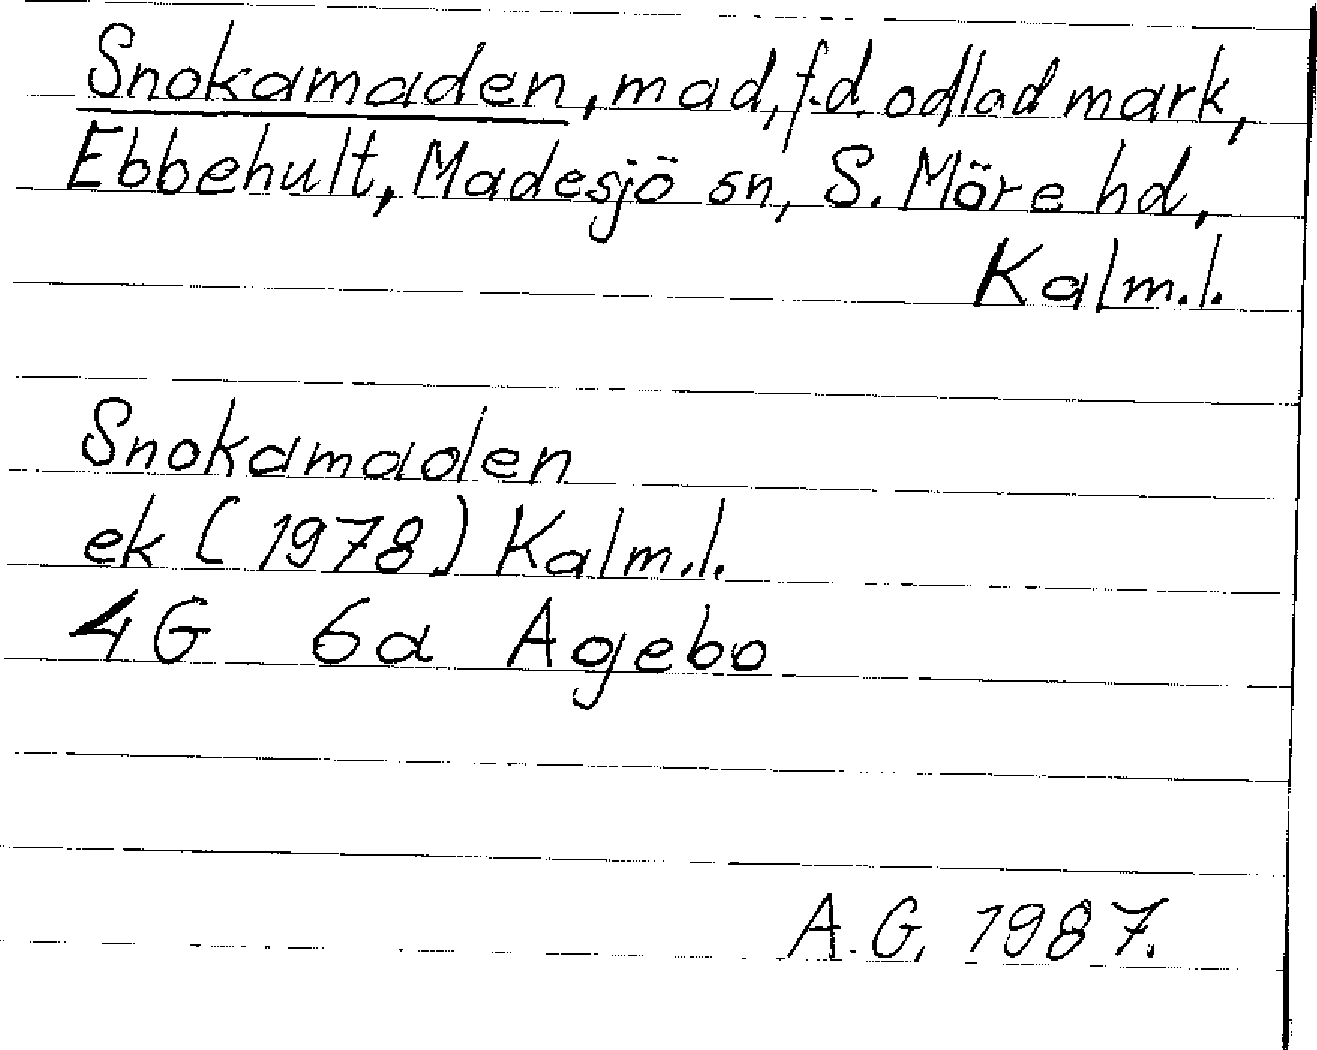 Snokamaden, mad, f.d. odlad mark,
Ebbehult, Madesjö sn, S. Möre hd,
Kalm.l.
Snokamaden
ek (1978) Kalm.l.
4G 6a Agebo
A.G. 1987.